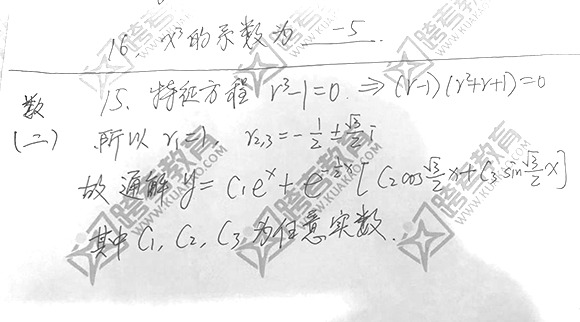 16. x³的系数为 -5
数 15. 特征方程 r³-1=0. ⇒ (r-1)(r²+r+1)=0
(二) 所以 r₁=1, r₂,₃=-1/2±√3/2 i
故通解 y=C₁eˣ+e^(-1/2x)[C₂cos√3/2x+C₃sin√3/2x]
其中 C₁, C₂, C₃ 为任意实数.
跨考教育
WWW.KUAKAO.COM